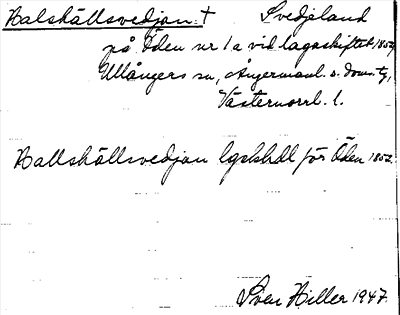 Halshällsvedjan. † Svedjeland
på Öden nr 1a vid lagaskiftet 1852,
Ullångers sn, Ångermanl. s. doms. tg,
Västernorrl. l.
Hallshällsvedjan lgskhdl för Öden 1852.
Sven Hiller 1947.